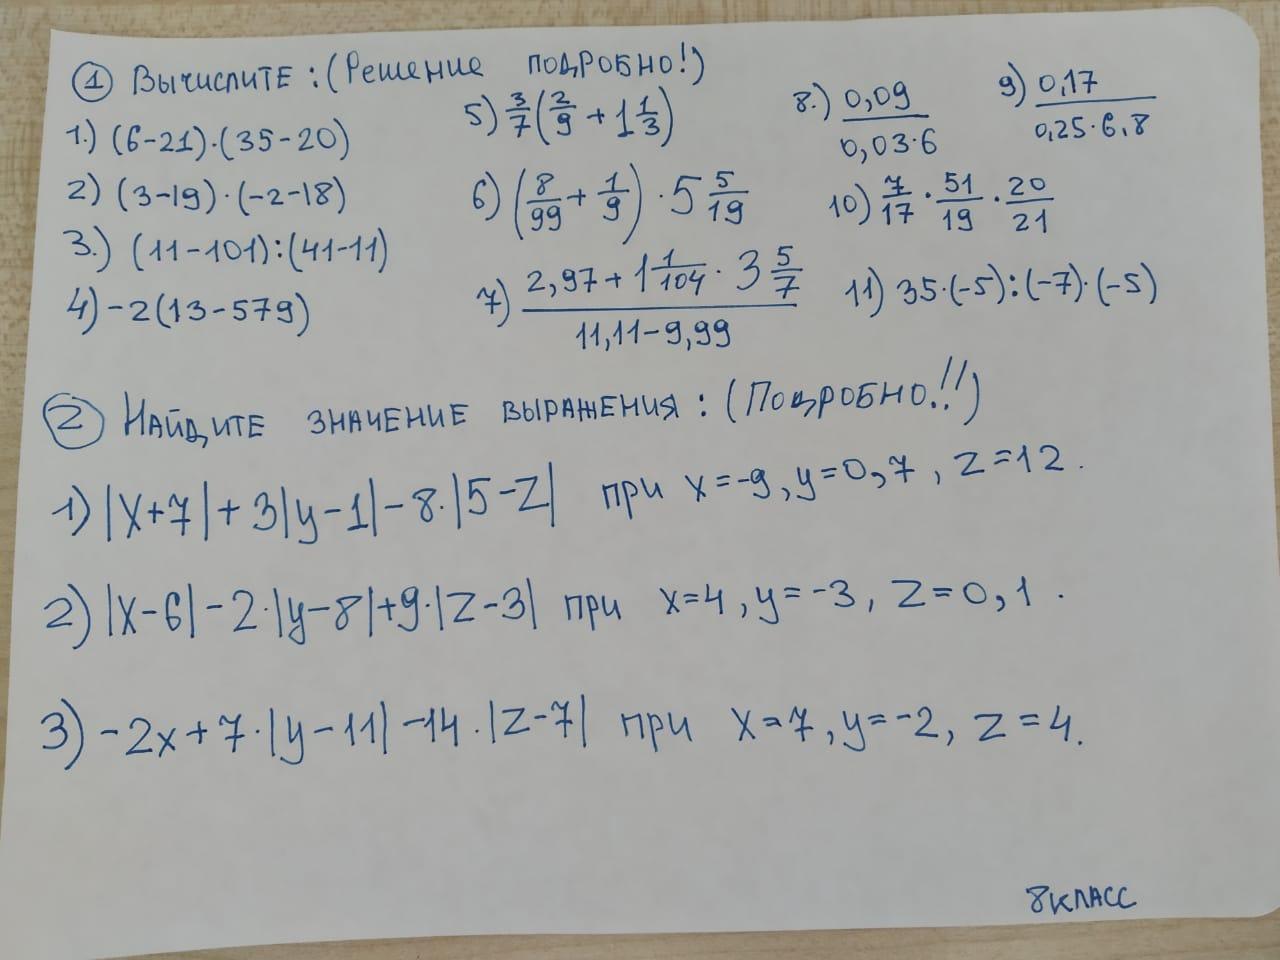 ① Вычислите: (Решение подробно!)
1.) (6-21)·(35-20)
2) (3-19)·(-2-18)
3.) (11-101):(41-11)
4) -2(13-579)
5) 3/7(2/9 + 1 1/3)
6) (8/99 + 1/9) · 5 5/19
7) (2,97 + 1 1/104 · 3 5/7)/(11,11-9,99)
8.) 0,09/(0,03·6)
9) 0,17/(0,25·6,8)
10) 7/17 · 51/19 · 20/21
11) 35·(-5):(-7)·(-5)
② Найдите значение выражения: (Подробно!!)
1) |x+7|+3|y-1|-8·|5-z| при x=-9, y=0,7, z=12.
2) |x-6|-2·|y-8|+9·|z-3| при x=4, y=-3, z=0,1.
3) -2x+7·|y-11|-14·|z-7| при x=7, y=-2, z=4.
8 класс